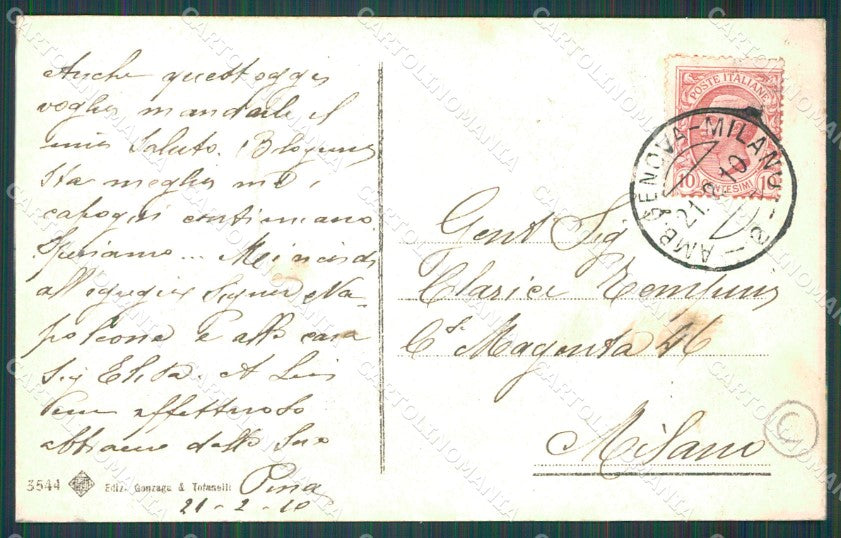 Anche quest'oggi
voglio mandarle il
mio saluto.
sta meglio ma i
capogiri continuano
Speriamo... Mi ricordi
all'egregio Signor Na-
poleone e alla cara
Sig Elisa. A Lei
un affettuoso
abbraccio dalla Sua
Pina
21-2-10
3544 Ediz. Gonzaga & Tofanelli
POSTE ITALIANE
10 CENTESIMI 10
AMB. GENOVA-MILANO
21.2.10
Gent Sig
Clarice
Cso Magenta 46
Milano
C
CARTOLINOMANIA